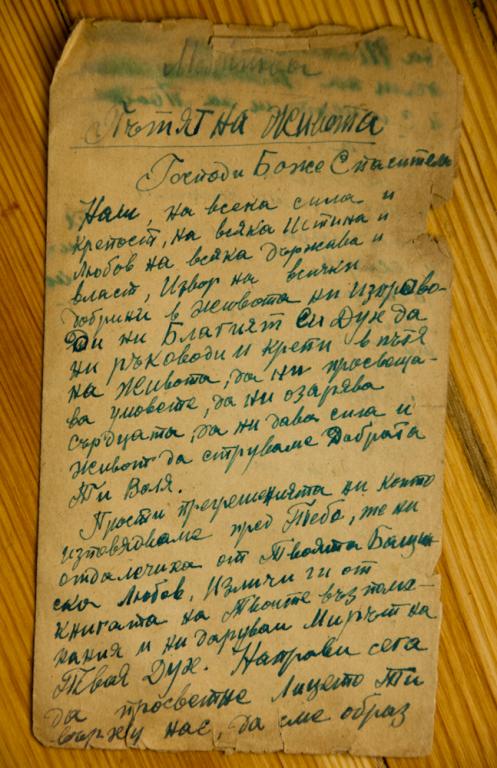 Молитви
Пътят на Живота
Господи Боже Спасителю
Наш, на всека сила и
крепост, на всяка Истина и
Любов на всяка държава и
власт, Извор на всички
добрини в живота ни Изпрово-
Ди ни Благият Си Дух да
ни ръководи и крепи в пътя
на Живота, да ни просвеща-
ва умовете, да ни озарява
сърдцата, да ни дава сила и
живот да струваме Добрата
Ти Воля.
Прости прегрешенията ни които
изповядваме пред Тебе, те ни
отдалечиха от Твоята Бащин-
ска Любов. Изличи ги от
книгата на Твоите възпоми-
нания и ни дарувай Мирът на
Твоя Дух. Направи сега
да просветне Лицето Ти
върху нас, да сме образ